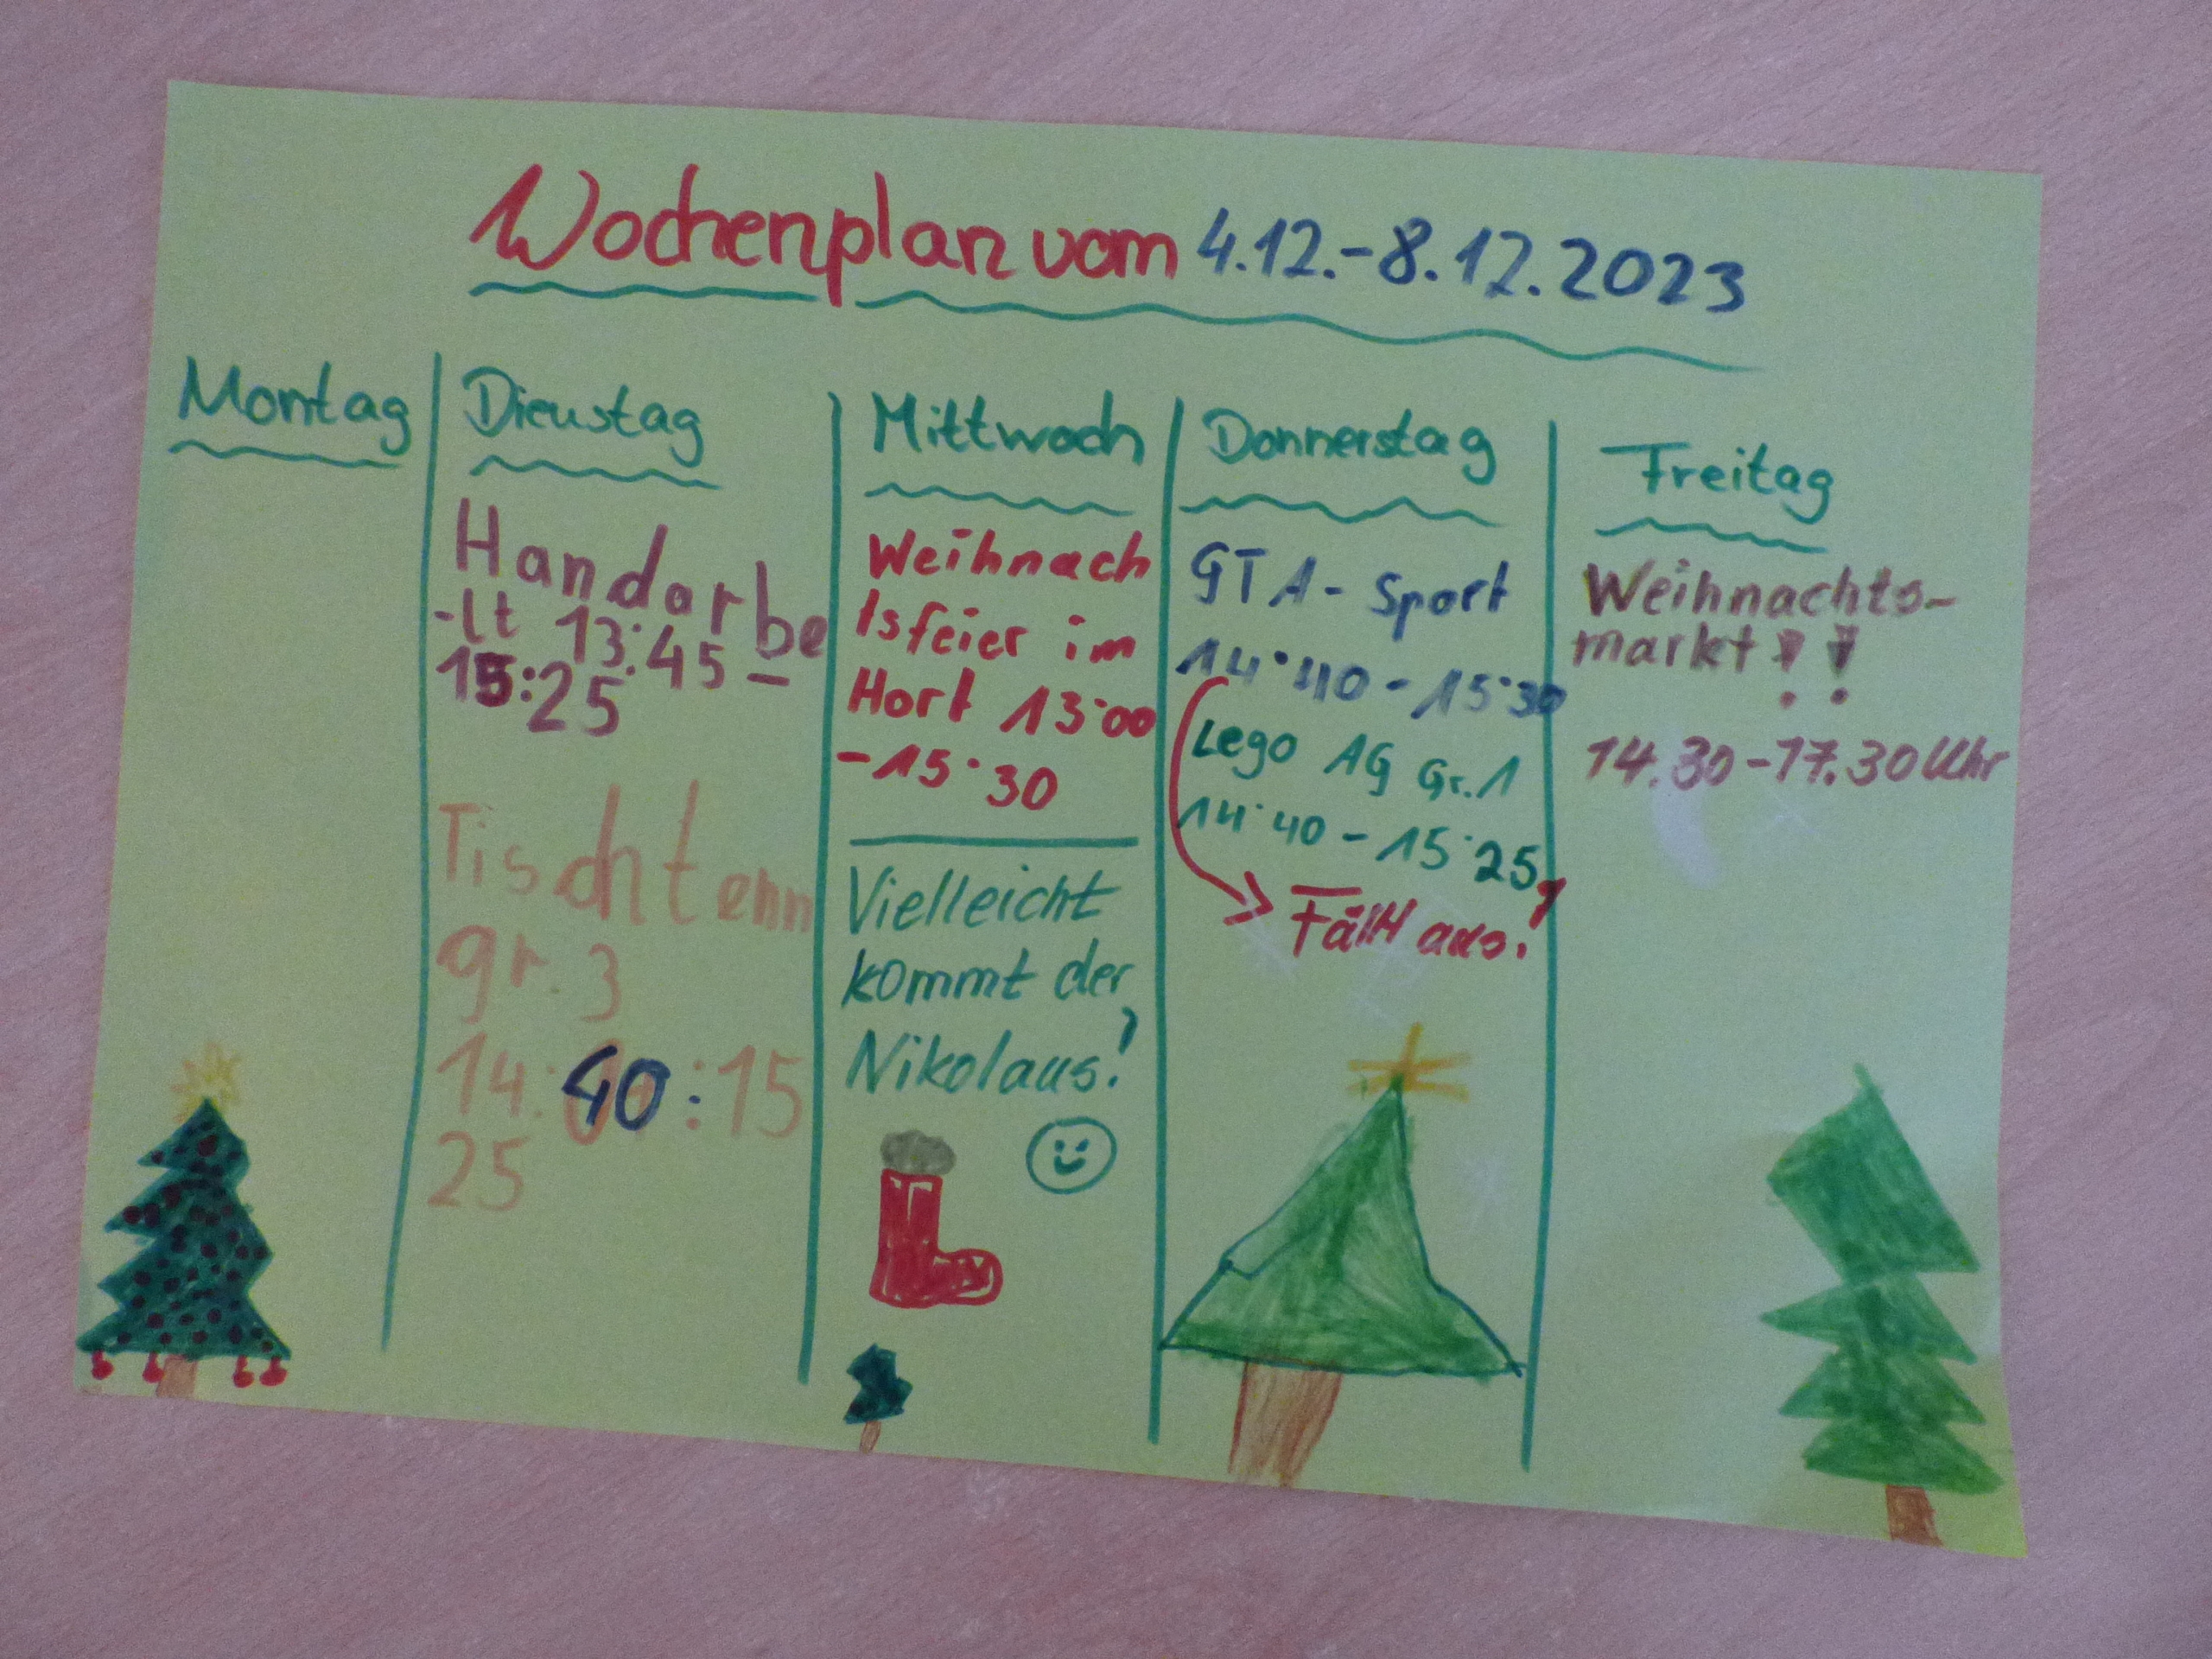 Wochenplan vom 4.12.-8.12.2023
Montag
Dienstag
Handarbe
-it 13:45 -
15:25
Tischtenn
gr. 3
14:40:15
25
Mittwoch
Weihnach
tsfeier im
Hort 13:00
-15:30
Vielleicht
kommt der
Nikolaus!
Donnerstag
GTA-Sport
14:40-15:30
Lego AG Gr.1
14:40-15:25
Fällt aus!
Freitag
Weihnachts-
markt!!
14.30-17.30 Uhr